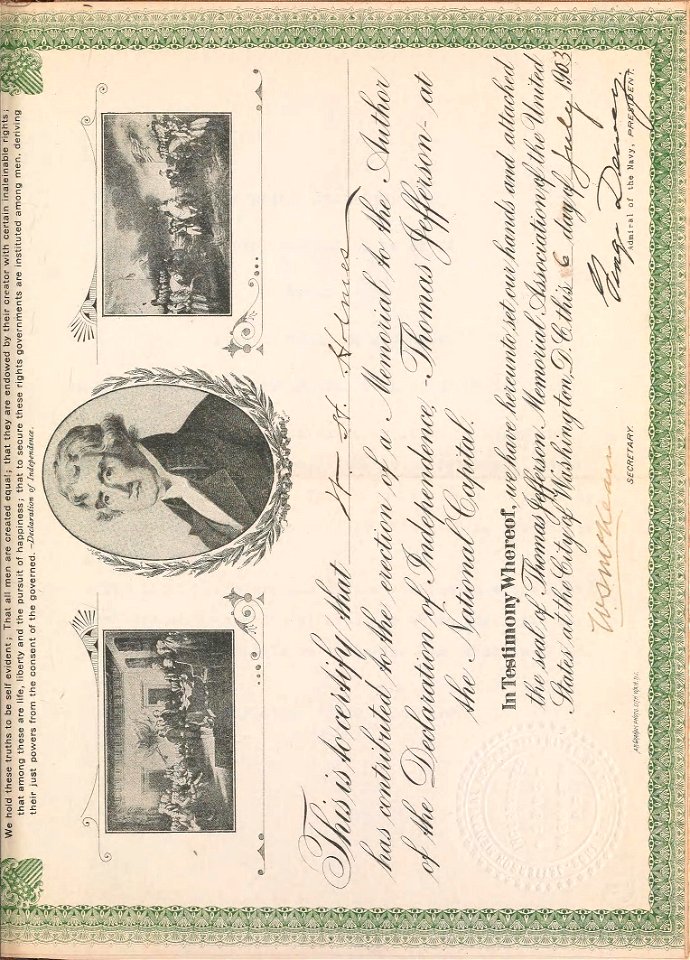 We hold these truths to be self evident; That all men are created equal; that they are endowed by their creator with certain inaleinable rights;
that among these are life, liberty and the pursuit of happiness; that to secure these rights governments are instituted among men, deriving
their just powers from the consent of the governed. -Declaration of Independence.
This is to certify that W— H. Holmes
has contributed to the erection of a Memorial to the Author
of the Declaration of Independence, -Thomas Jefferson- at
the National Capital.
In Testimony Whereof, we have hereunto set our hands and attached
the seal of Thomas Jefferson Memorial Association of the United
States at the City of Washington, D.C. this 6 day of July 1903
W.S. McKean
SECRETARY.
George Dewey.
Admiral of the Navy, PRESIDENT.